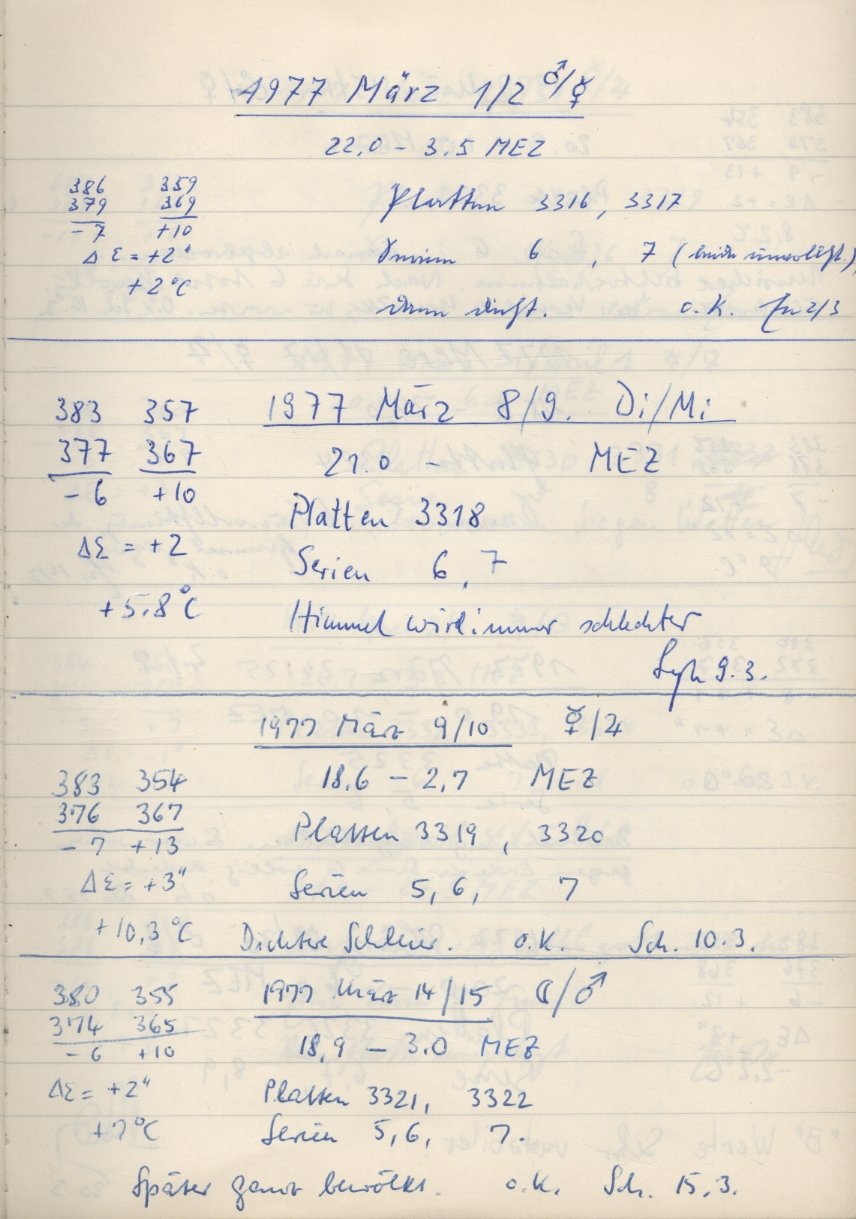 1977 März 1/2 ♂/☿
22.0 – 3.5 MEZ
386 359
379 369
-7 +10
Δε = +2"
+2°C
Platten 3316, 3317
Serien 6, 7 (beide unvollst.),
dann dicht. o.K. Fu 2/3
383 357
377 367
-6 +10
Δε = +2
+5.8°C
1977 März 8/9. Di/Mi
21.0 – MEZ
Platten 3318
Serien 6, 7
Himmel wird immer schlechter
9.3.
1977 März 9/10 ☿/♃
383 354
376 367
-7 +13
Δε = +3"
+10,3°C
18.6 – 2,7 MEZ
Platten 3319, 3320
Serien 5, 6, 7
Dichter Schleier. o.K. Sch. 10.3.
380 355
374 365
-6 +10
Δε = +2"
+7°C
1977 März 14/15 ☾/♂
18,9 – 3.0 MEZ
Platten 3321, 3322
Serien 5, 6, 7.
Später ganz bewölkt. o.K. Sch. 15.3.